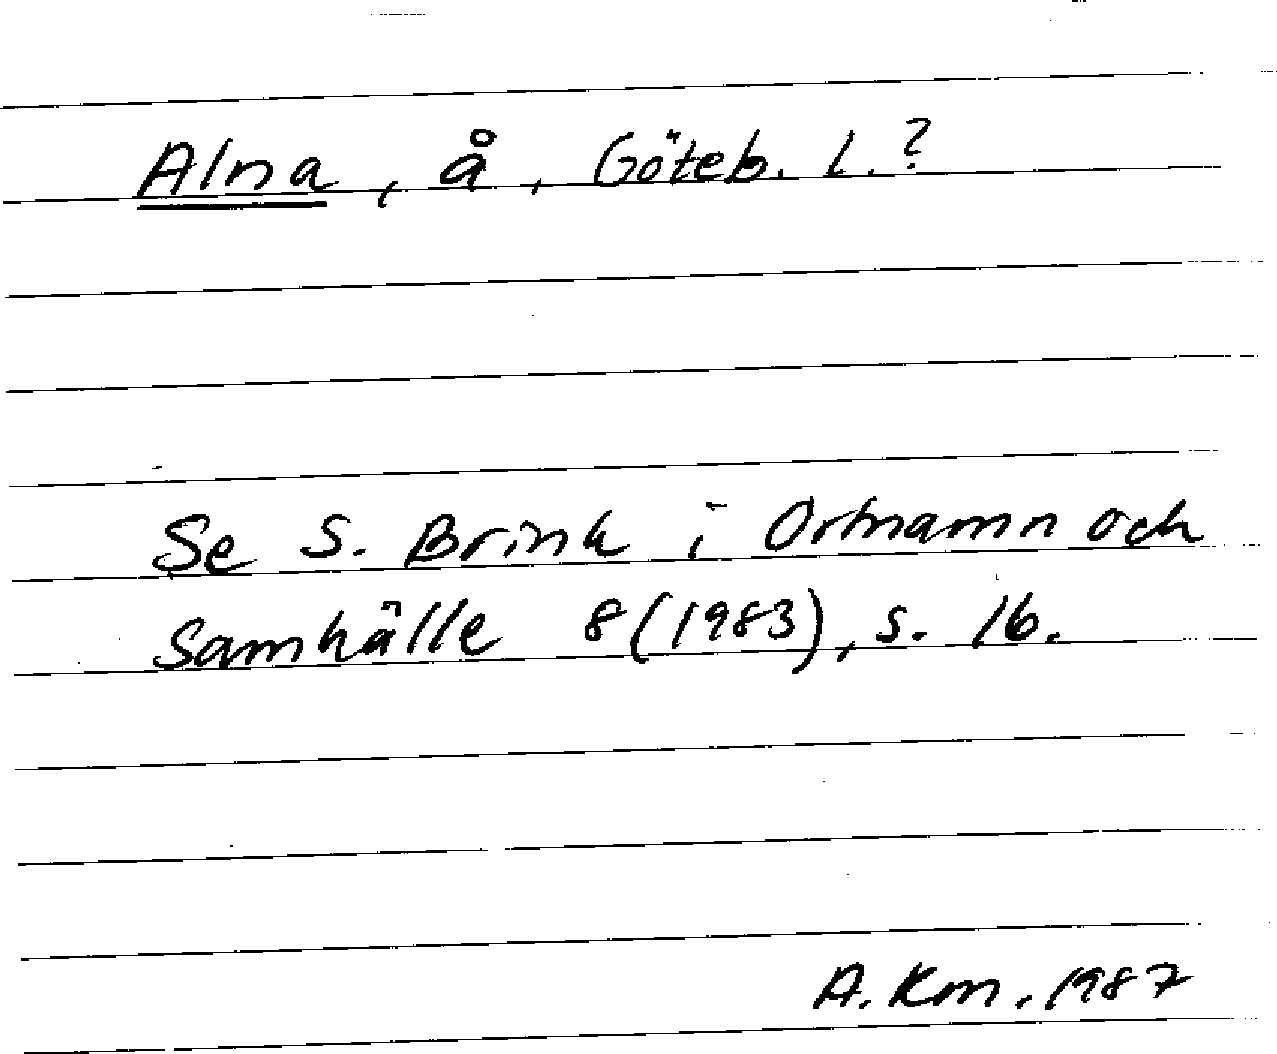 Alna, å, Göteb. l.?
Se S. Brink i Ortnamn och
Samhälle 8 (1983), s. 16.
A. Km. 1987